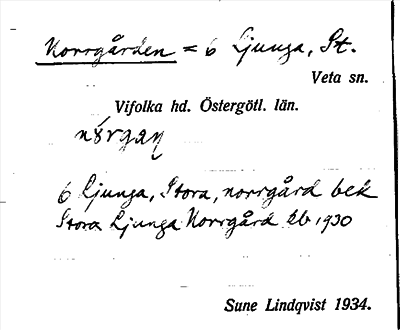 Norrgården = 6 Ljunga, St.
Veta sn.
Vifolka hd. Östergötl. län.
6 Ljunga, Stora, norrgård bek
Stora Ljunga Norrgård kb 1930
Sune Lindqvist 1934.